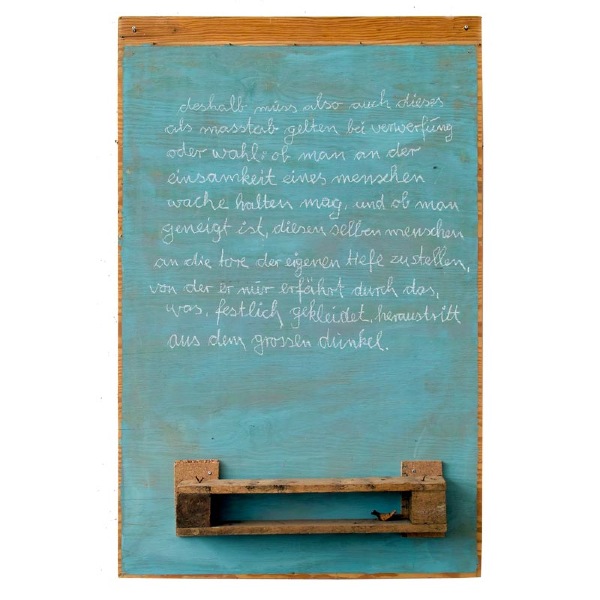 deshalb muss also auch dieses
als masstab gelten bei verwerfung
oder wahl: ob man an der
einsamkeit eines menschen
wache halten mag, und ob man
geneigt ist, diesen selben menschen
an die tore der eigenen tiefe zu stellen,
von der er nur erfährt durch das,
was, festlich gekleidet, heraustritt
aus dem grossen dunkel.